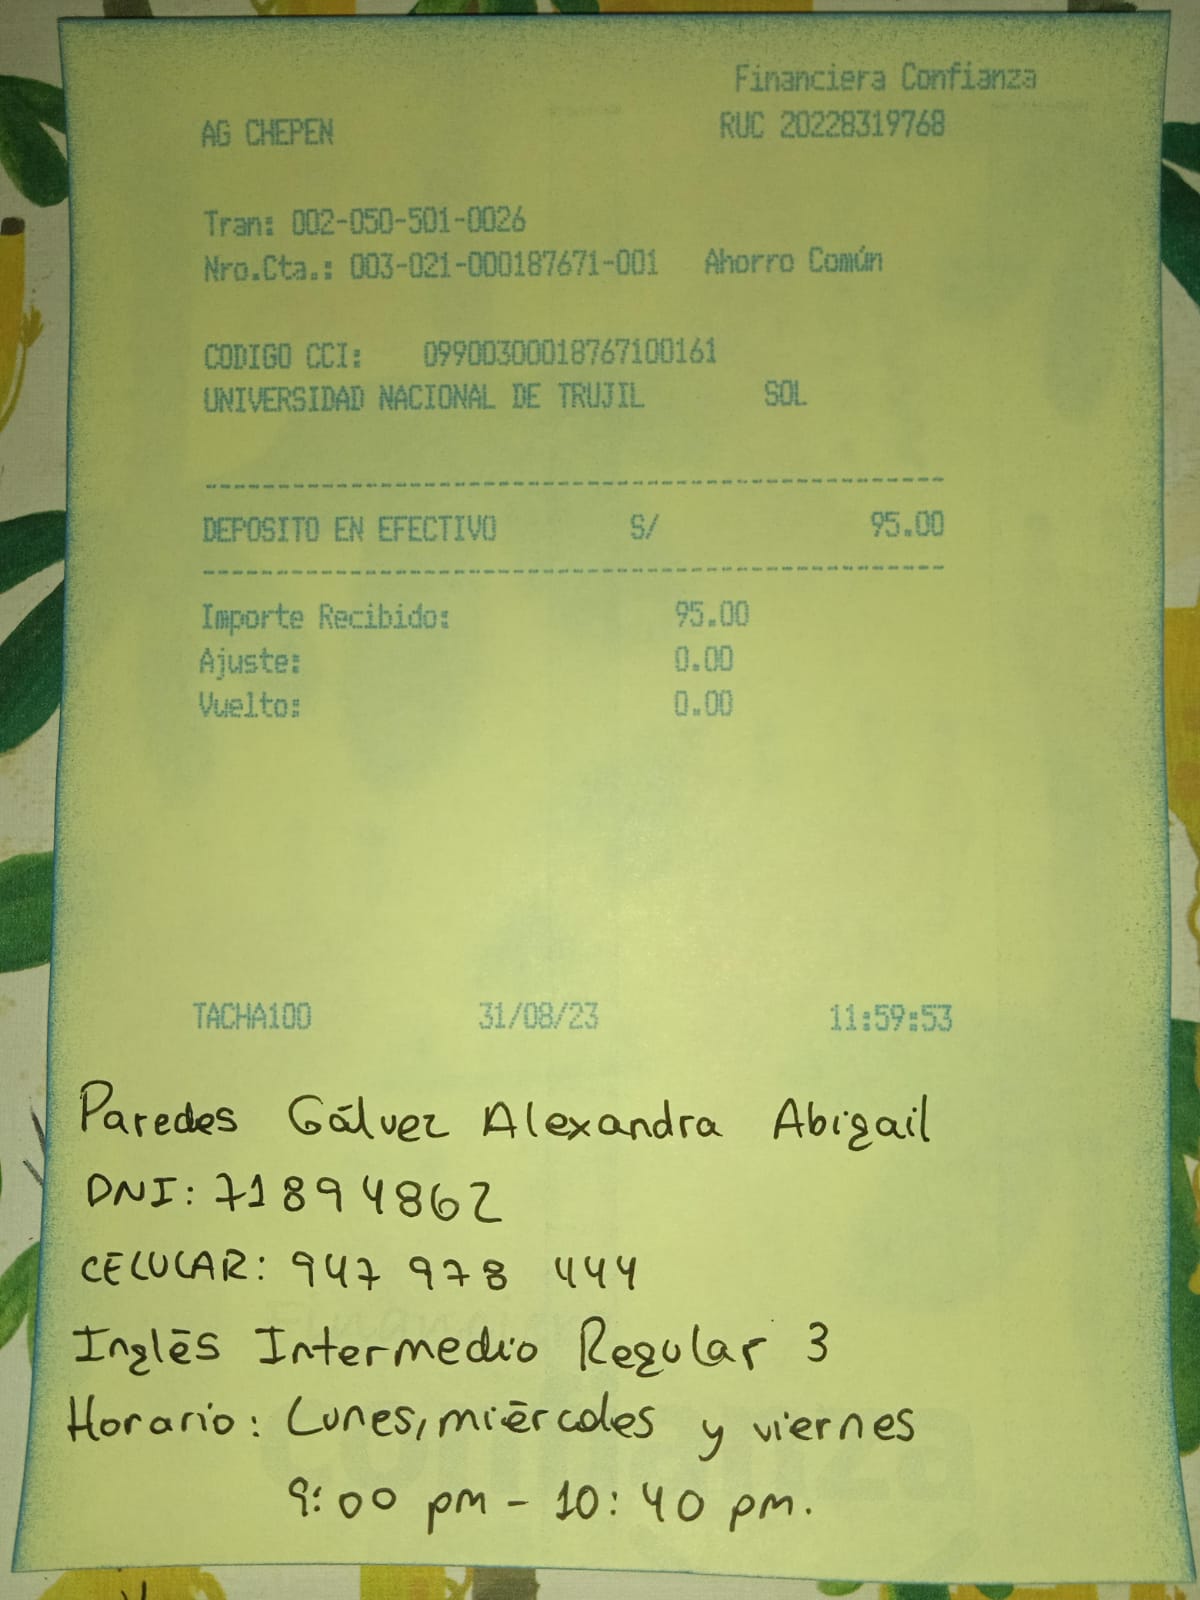 Financiera Confianza
AG CHEPEN RUC 20228319768
Tran: 002-050-501-0026
Nro.Cta.: 003-021-000187671-001 Ahorro Común
CODIGO CCI: 09900300018767100161
UNIVERSIDAD NACIONAL DE TRUJIL SOL
DEPOSITO EN EFECTIVO S/ 95.00
Importe Recibido: 95.00
Ajuste: 0.00
Vuelto: 0.00
TACHA100 31/08/23 11:59:53
Paredes Gálvez Alexandra Abigail
DNI: 71894862
CELULAR: 947 978 444
Inglés Intermedio Regular 3
Horario: Lunes, miércoles y viernes
9:00 pm - 10:40 pm.